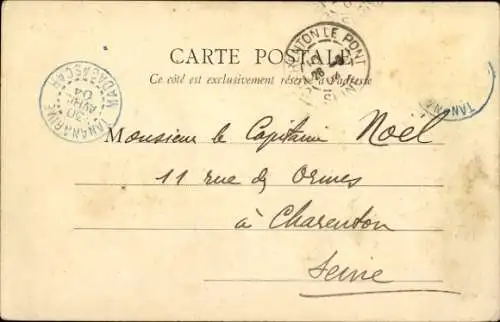 CARTE POSTALE
Ce côté est exclusivement réservé à l'adresse
TANANARIVE
MADAGASCAR
30
AVRIL
04
CHARENTON LE PONT
28
TANANA
Monsieur le Capitaine Noël
11 rue des Ormes
à Charenton
Seine